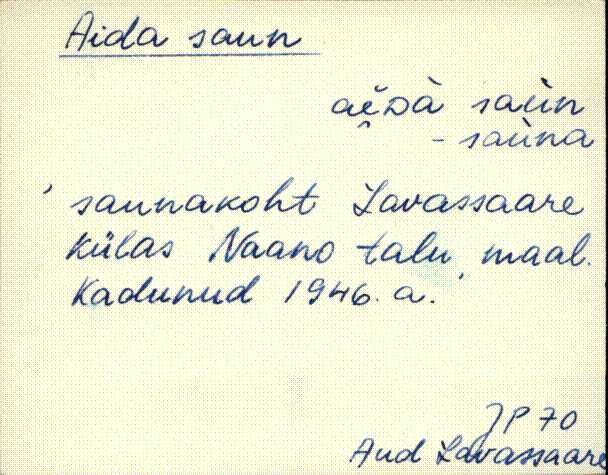 Aida saun
aḙ̆ᴅà saùn
- saùna
saunakoht Lavassaare
külas Naano talu maal.
Kadunud 1946. a.
JP 70
Aud Lavassaare